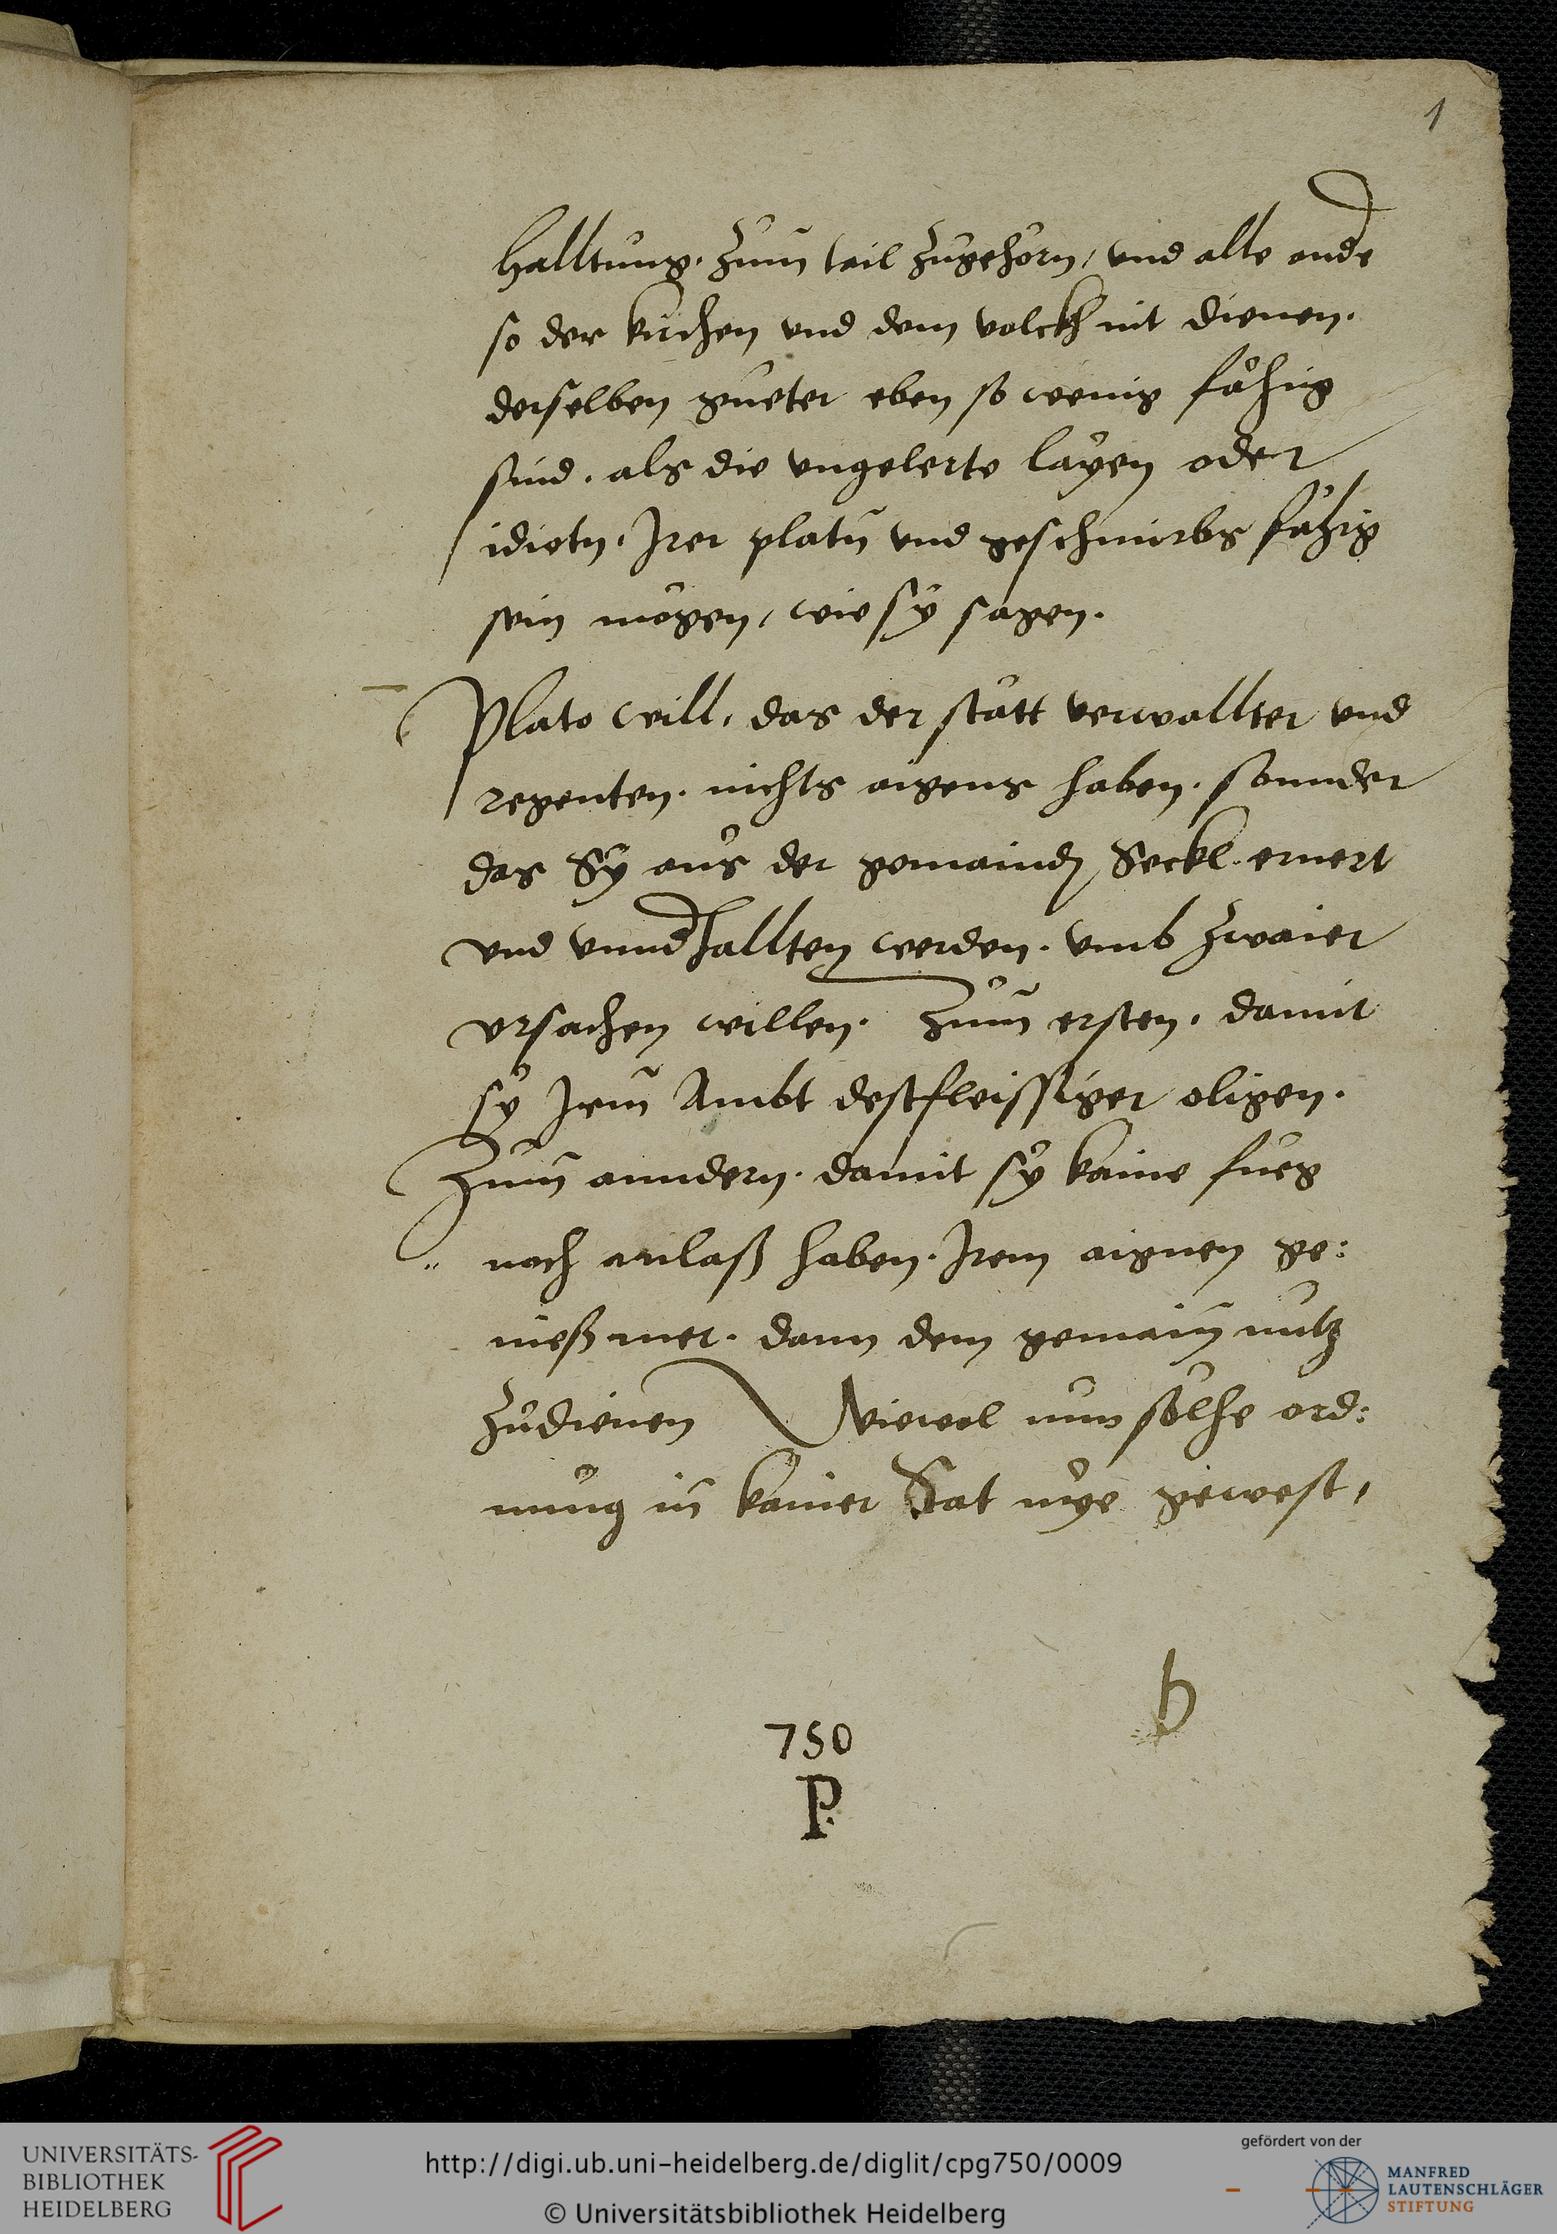 1
halltung. zum tail zugehörn, vnd alle ande
so der kirchen vnd dem volckh nit dienen.
derselben gueter eben so wenig fähig
sind. als die vngelerte layen oder
idiotn. Jrer platn vnd geschmirbs fähig
sein mögen, wie sy sagen.
Plato will, das der stätt verwallter vnd
regenten. nichts aigens haben. sonnder
das Sy aus der gemaind Seckl ernert
vnd vnndhallten werden. vmb zwaier
vrsachen willen. Zum ersten. damit
sy Jrm Ambt destfleissiger oligen.
Zum anndern. damit sy kaine fueg
noch anlaß haben. Jrem aignen ge:
nieß mer. dann dem gemain nutz
zudienen Wiewol nun sölhe ord:
nung in kainer Stat nye gewest,
b
750
P.
UNIVERSITÄTS-
BIBLIOTHEK
HEIDELBERG
http://digi.ub.uni-heidelberg.de/diglit/cpg750/0009
© Universitätsbibliothek Heidelberg
gefördert von der
MANFRED
LAUTENSCHLÄGER
STIFTUNG